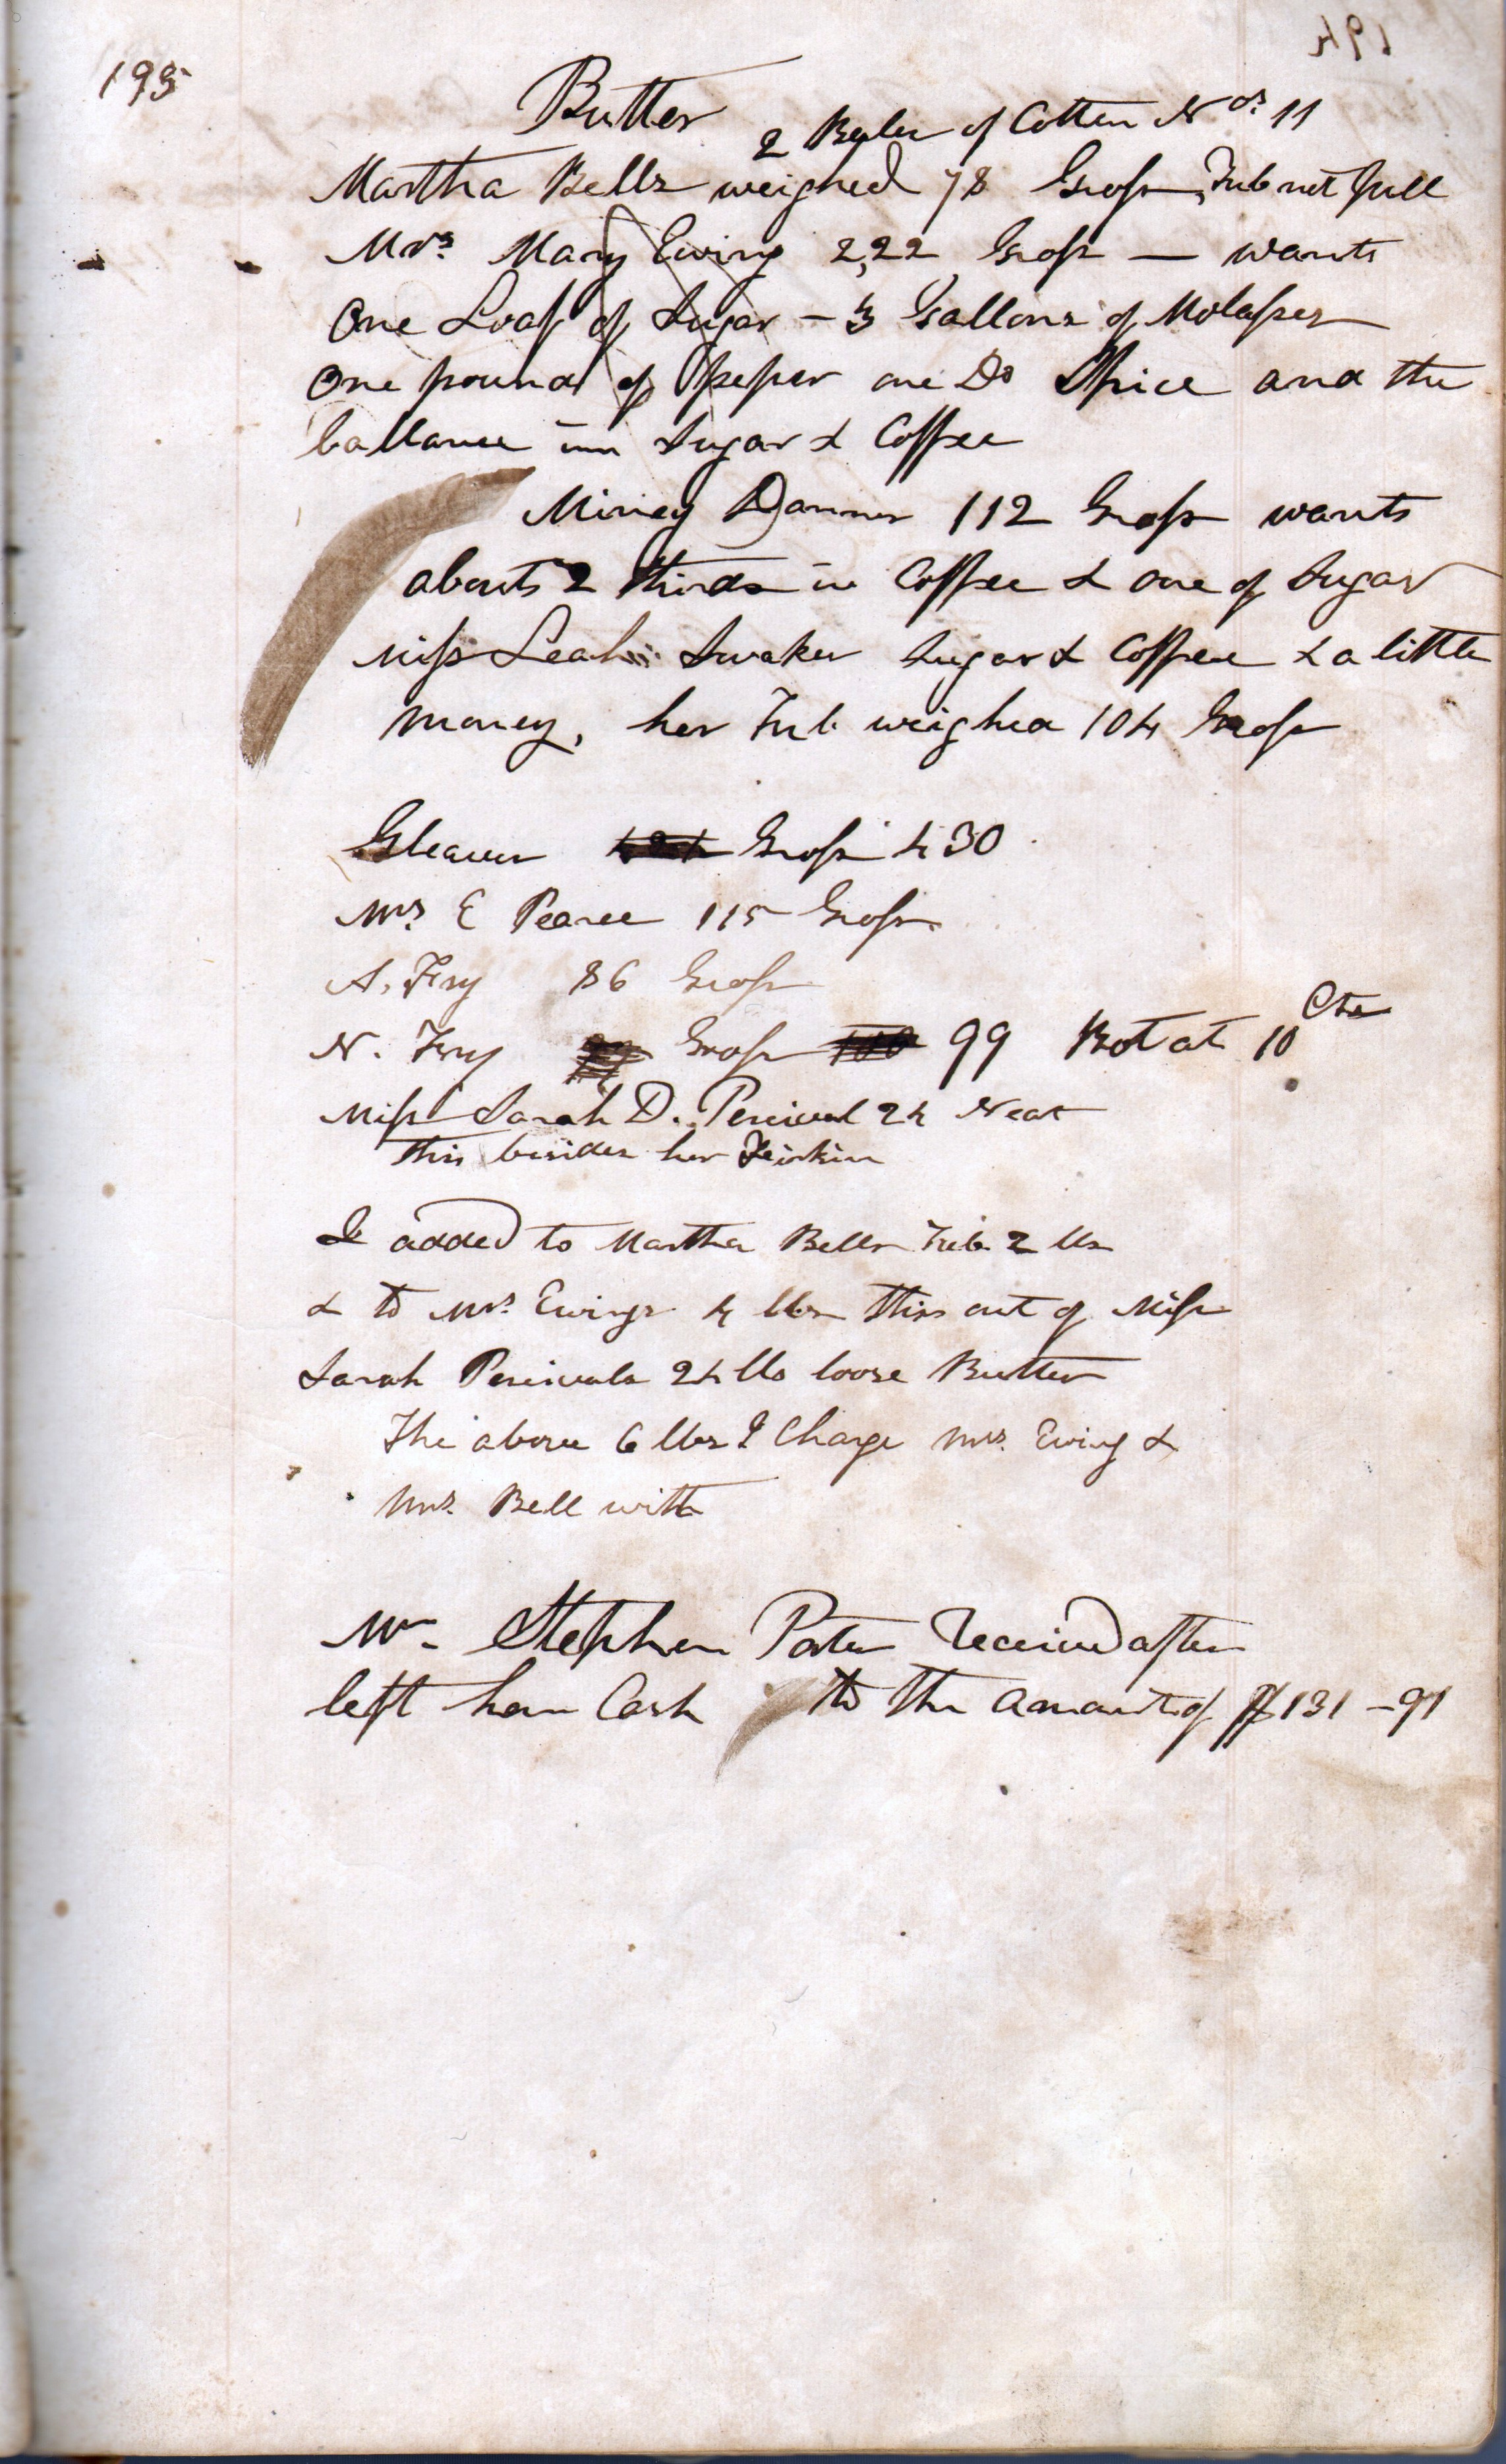 195
Butter 2 Bales of Cotten Nos. 11
Martha Bells weighed 78 Gross, Tub not full
Mrs. Mary Ewing 222 Gross — wants
One Loaf of Sugar – 3 Gallons of Molasses
One pound of Peper one Do Spice and the
ballance inn Sugar & Coffee
Miney Danner 112 Gross wants
about 2 thirds in Coffee & one of Sugar
Miss Leah Swaker Sugar & Coffee & a little
money, her Tub weighed 104 Gross
Gleaver Gross 430
Mrs. E Pearce 115 Gross
A. Fry 86 Gross
N. Fry Gross 99 Bot at 10 Cts
Miss Sarah D. Percival 24 Neat
this besides her Feirkin
I added to Martha Bells Tub 2 lbs
& to Mrs. Ewings 4 lbs this out of Miss
Sarah Percivals 24 lbs loose Butter
The above 6 lbs I Charge Mrs. Ewing &
Mrs. Bell with
Mr. Stephen Porter Received after
left hom Cash to the amount of $131 – 91